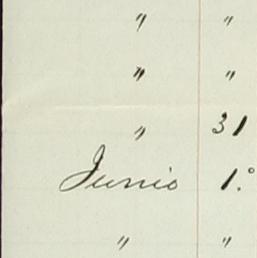 " "
" "
" 31
Junio 1.°
" "